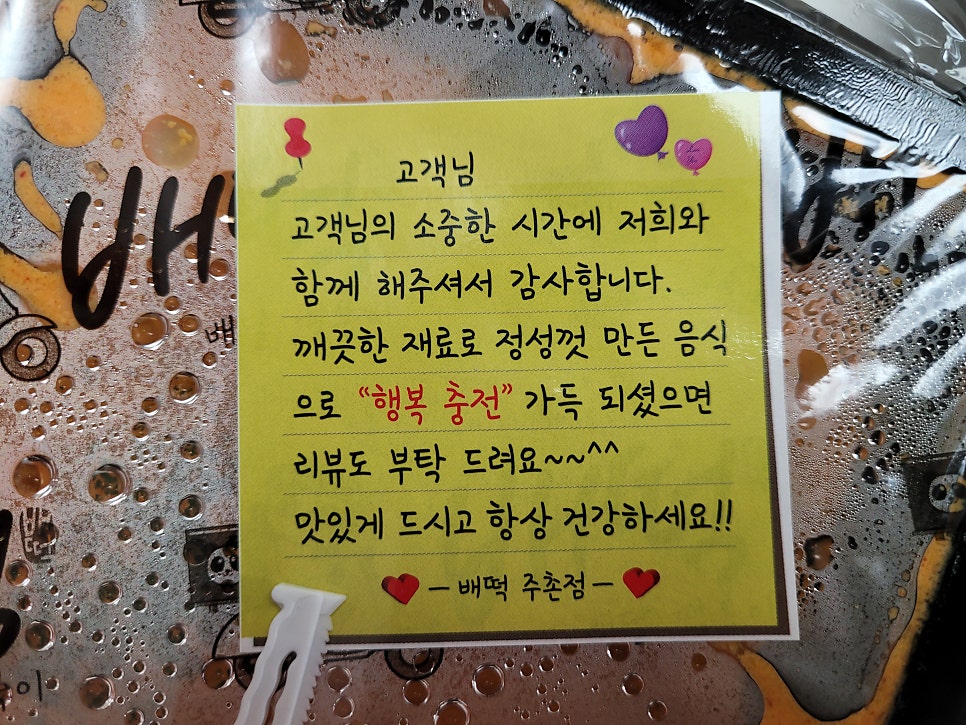 고객님
고객님의 소중한 시간에 저희와
함께 해주셔서 감사합니다.
깨끗한 재료로 정성껏 만든 음식
으로 "행복 충전" 가득 되셨으면
리뷰도 부탁 드려요~~^^
맛있게 드시고 항상 건강하세요!!
- 배떡 주촌점 -